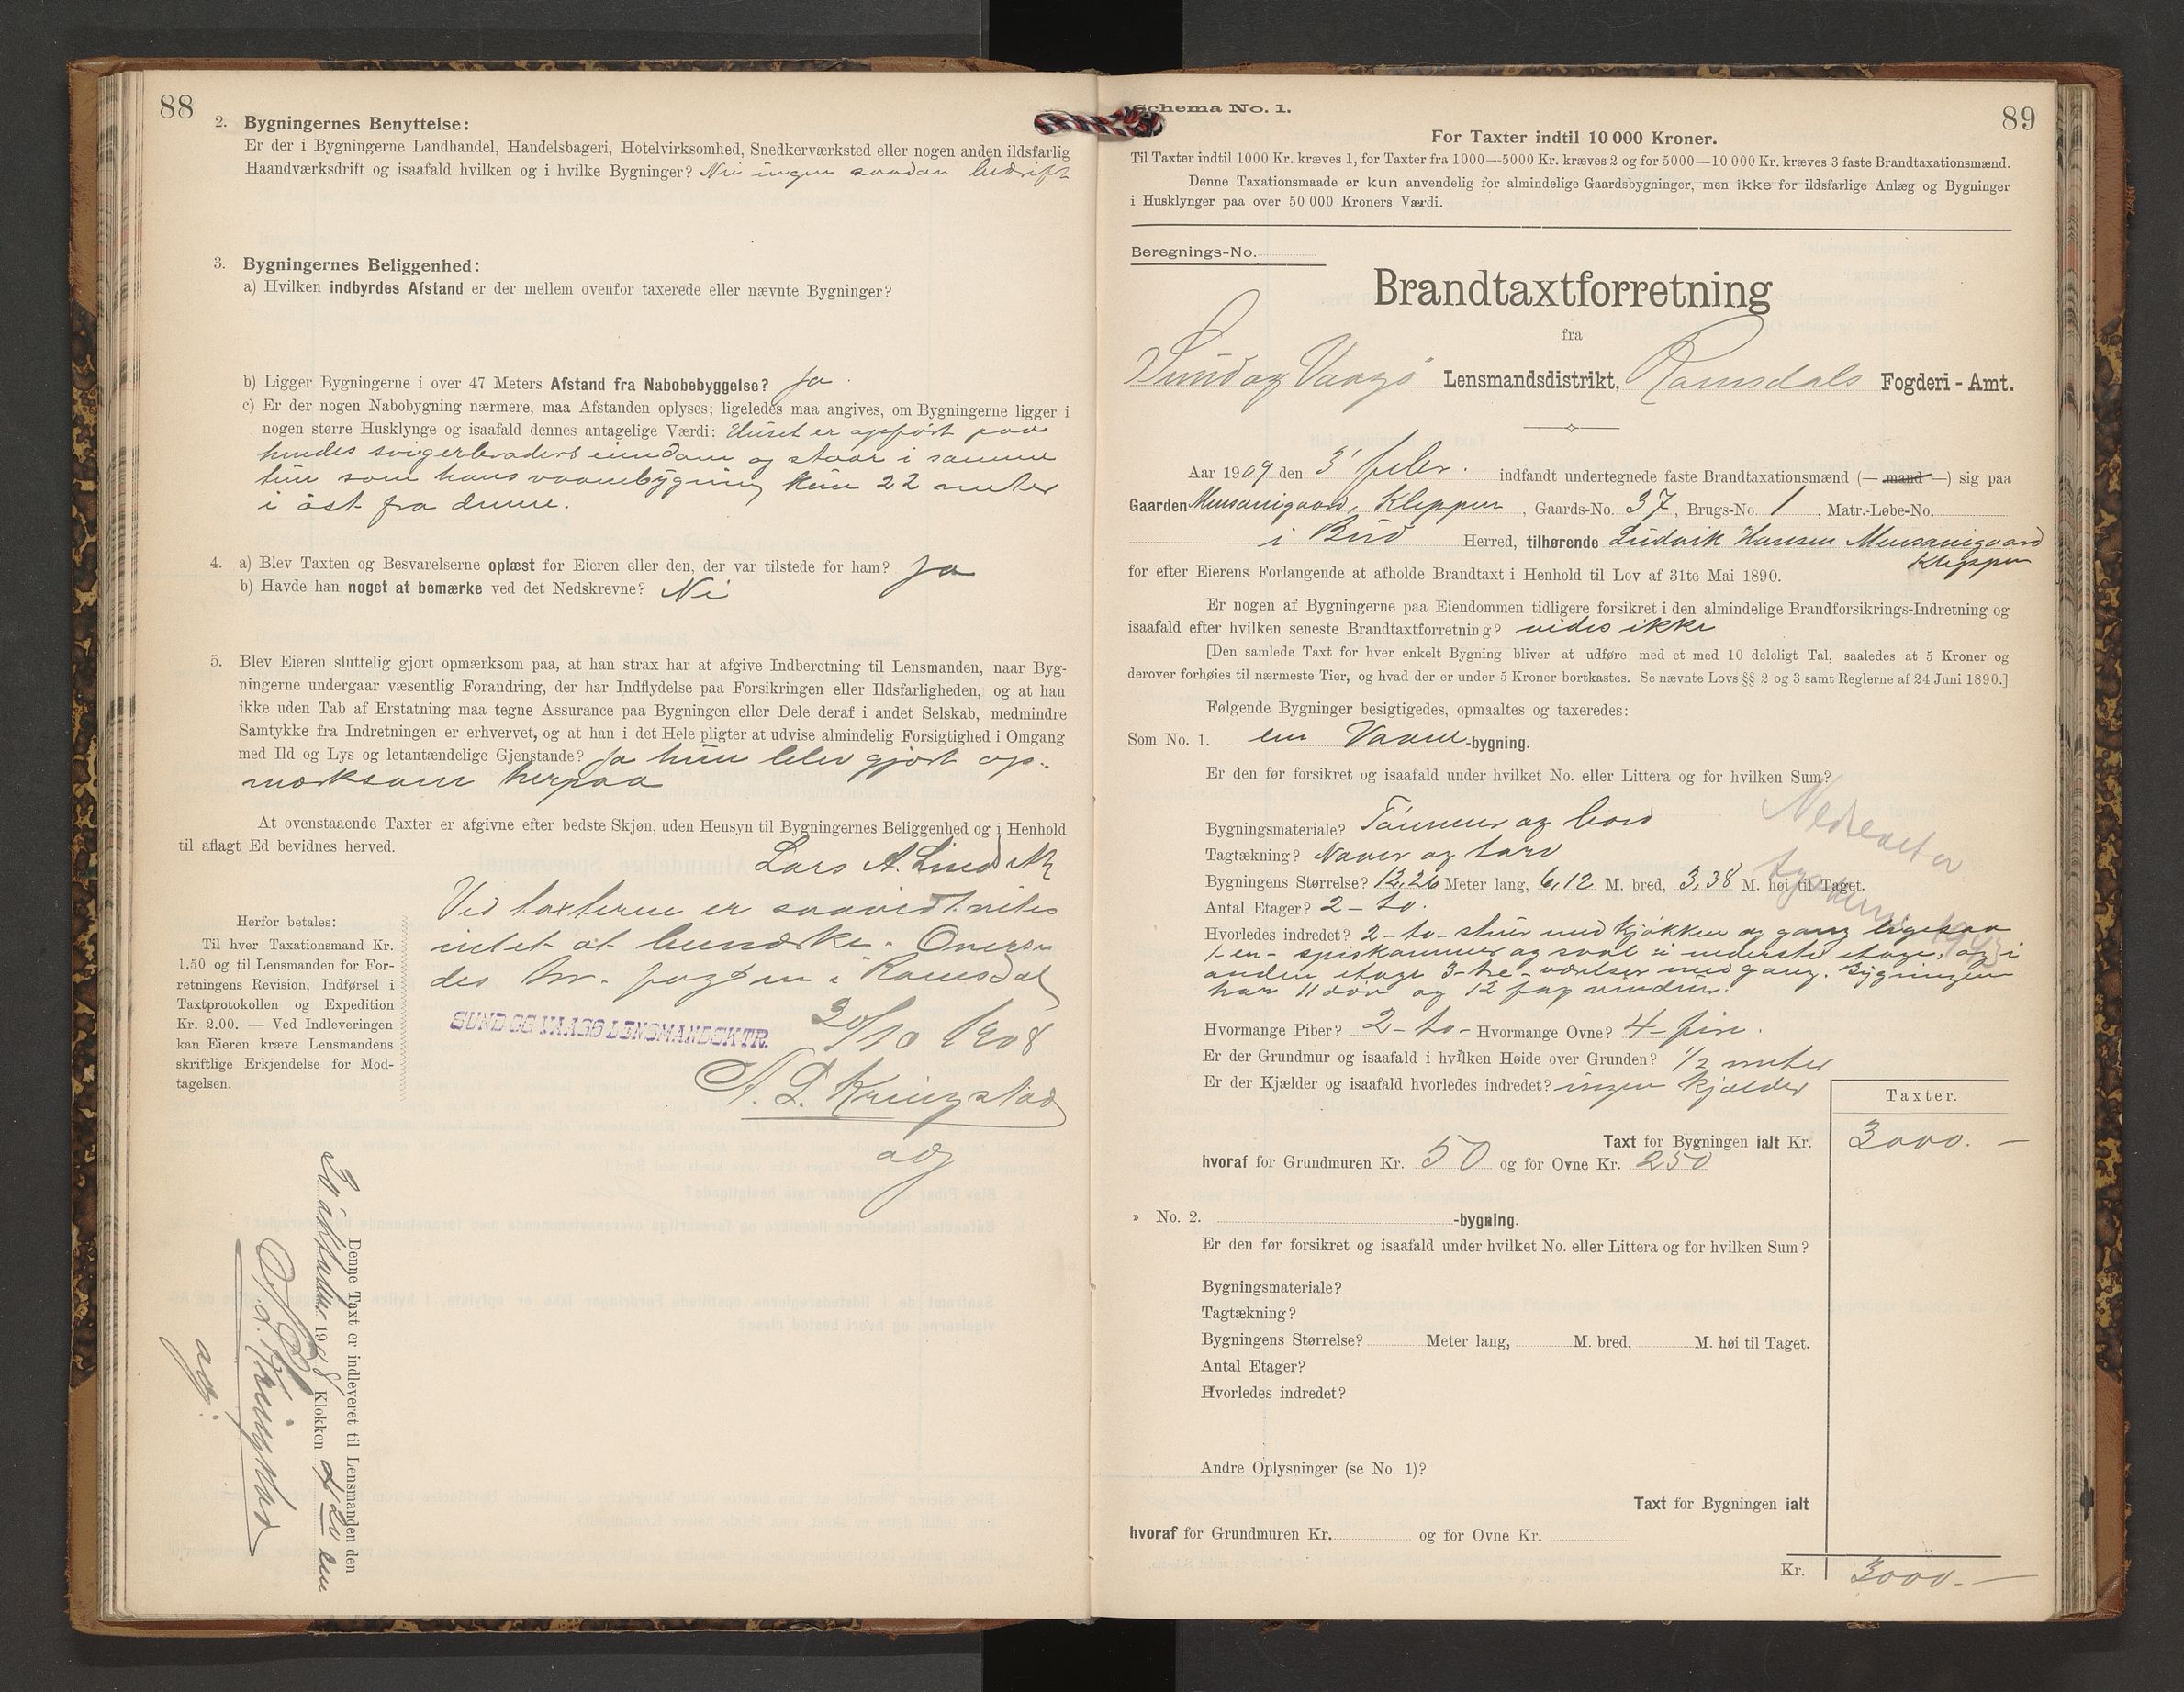 88
2. Bygningernes Benyttelse:
Er der i Bygningerne Landhandel, Handelsbageri, Hotelvirksomhed, Snedkerværksted eller nogen anden ildsfarlig
Haandværksdrift og isaafald hvilken og i hvilke Bygninger? Nei ingen saadan bedrift
3. Bygningernes Beliggenhed:
a) Hvilken indbyrdes Afstand er der mellem ovenfor taxerede eller nævnte Bygninger?
b) Ligger Bygningerne i over 47 Meters Afstand fra Nabobebyggelse? Ja.
c) Er der nogen Nabobygning nærmere, maa Afstanden oplyses; ligeledes maa angives, om Bygningerne ligger i
nogen større Husklynge og isaafald dennes antagelige Værdi: Huset er opført paa
hendes svigerbroders eiendom og staar i samme
tun som hans vaanebygning kun 22 meter
i øst fra denne.
4. a) Blev Taxten og Besvarelserne oplæst for Eieren eller den, der var tilstede for ham? Ja
b) Havde han noget at bemærke ved det Nedskrevne? Nei
5. Blev Eieren sluttelig gjort opmærksom paa, at han strax har at afgive Indberetning til Lensmanden, naar Byg-
ningerne undergaar væsentlig Forandring, der har Indflydelse paa Forsikringen eller Ildsfarligheden, og at han
ikke uden Tab af Erstatning maa tegne Assurance paa Bygningen eller Dele deraf i andet Selskab, medmindre
Samtykke fra Indretningen er erhvervet, og at han i det Hele pligter at udvise almindelig Forsigtighed i Omgang
med Ild og Lys og letantændelige Gjenstande? Ja hun blev gjort op-
mærksom herpaa
At ovenstaaende Taxter er afgivne efter bedste Skjøn, uden Hensyn til Bygningernes Beliggenhed og i Henhold
til aflagt Ed bevidnes herved.
Lars A. Lindset
Ved taxterne er saavidt vites
intet at bemærke. Oversen
des hr. fogden i Romsdal
SUND OG VAAGØ LENSMANDSKTR. 20/10 1908
A. L. Kringstad
Herfor betales:
Til hver Taxationsmand Kr.
1.50 og til Lensmanden for For-
retningens Revision, Indførsel i
Taxtprotokollen og Expedition
Kr. 2.00. — Ved Indleveringen
kan Eieren kræve Lensmandens
skriftlige Erkjendelse for Mod-
tagelsen.
Denne Taxt er indleveret til Lensmanden den
20 oktober 1908 Klokken
Kringstad
89
Schema No. 1.
For Taxter indtil 10 000 Kroner.
Til Taxter indtil 1000 Kr. kræves 1, for Taxter fra 1000—5000 Kr. kræves 2 og for 5000—10 000 Kr. kræves 3 faste Brandtaxationsmænd.
Denne Taxationsmaade er kun anvendelig for almindelige Gaardsbygninger, men ikke for ildsfarlige Anlæg og Bygninger
i Husklynger paa over 50 000 Kroners Værdi.
Beregnings-No.
Brandtaxtforretning
fra
Sund og Vaagø Lensmandsdistrikt, Romsdals Fogderi - Amt.
Aar 1909 den 3' febr. indfandt undertegnede faste Brandtaxationsmænd (— mand —) sig paa
Gaarden Kleppen, Gaards-No. 37, Brugs-No. 1, Matr.-Løbe-No.
i Bud Herred, tilhørende Ludvik Hansen
Kleppen
for efter Eierens Forlangende at afholde Brandtaxt i Henhold til Lov af 31te Mai 1890.
Er nogen af Bygningerne paa Eiendommen tidligere forsikret i den almindelige Brandforsikrings-Indretning og
isaafald efter hvilken seneste Brandtaxtforretning? vides ikke
[Den samlede Taxt for hver enkelt Bygning bliver at udføre med et med 10 deleligt Tal, saaledes at 5 Kroner og
derover forhøies til nærmeste Tier, og hvad der er under 5 Kroner bortkastes. Se nævnte Lovs §§ 2 og 3 samt Reglerne af 24 Juni 1890.]
Følgende Bygninger besigtigedes, opmaaltes og taxeredes:
Som No. 1. en Vaane-bygning.
Er den før forsikret og isaafald under hvilket No. eller Littera og for hvilken Sum?
Nedrevet av
tyskerne 1943
Bygningsmateriale? Tømmer og bord
Tagtækning? Naver og torv
Bygningens Størrelse? 12,26 Meter lang, 6,12 M. bred, 3,38 M. høi til Taget.
Antal Etager? 2 - to.
Hvorledes indredet? 2 - to - stuer med kjøkken og gang ligesaa
1 - en - spiskammer og sval i nederste etage, og i
anden etage 3 - tre - værelser med gang. Bygningen
har 11 dør og 12 fag vinduer.
Hvormange Piber? 2 - to - Hvormange Ovne? 4 - fire.
Er der Grundmur og isaafald i hvilken Høide over Grunden? 1/2 meter
Er der Kjælder og isaafald hvorledes indredet? ingen kjælder
Taxter.
Taxt for Bygningen ialt Kr. 3000. —
hvoraf for Grundmuren Kr. 50 og for Ovne Kr. 250
» No. 2. -bygning.
Er den før forsikret og isaafald under hvilket No. eller Littera og for hvilken Sum?
Bygningsmateriale?
Tagtækning?
Bygningens Størrelse? Meter lang, M. bred, M. høi til Taget.
Antal Etager?
Hvorledes indredet?
Andre Oplysninger (se No. 1)?
Taxt for Bygningen ialt
hvoraf for Grundmuren Kr. og for Ovne Kr.
Kr. 3000. —